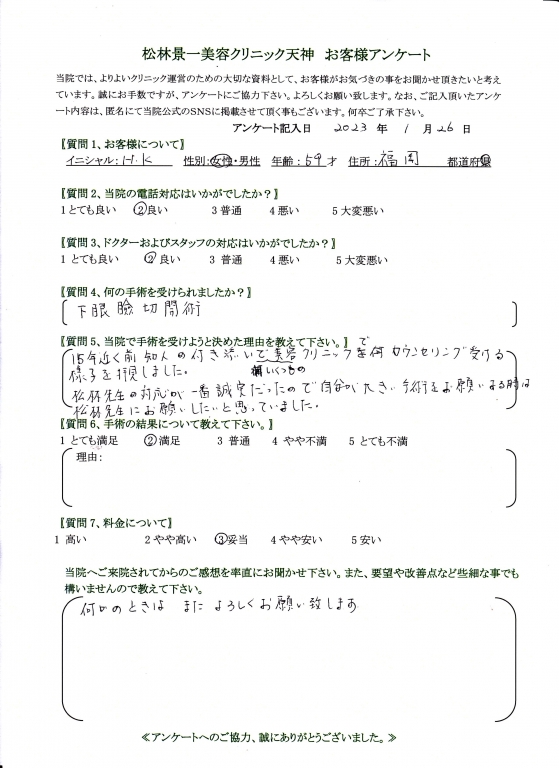 松林景一美容クリニック天神 お客様アンケート
当院では、よりよいクリニック運営のための大切な資料として、お客様がお気づきの事をお聞かせ頂きたいと考え
ています。誠にお手数ですが、アンケートにご協力下さい。よろしくお願い致します。なお、ご記入頂いたアンケ
ート内容は、匿名にて当院公式のSNSに掲載させて頂く事もございます。何卒ご了承下さい。
アンケート記入日 2023 年 1 月 26 日
〖質問1、お客様について〗
イニシャル:H.K 性別:女性・男性 年齢:59才 住所:福岡 都道府県
〖質問2、当院の電話対応はいかがでしたか?〗
1とても良い ②良い 3普通 4悪い 5大変悪い
〖質問3、ドクターおよびスタッフの対応はいかがでしたか?〗
1とても良い ②良い 3普通 4悪い 5大変悪い
〖質問4、何の手術を受けられましたか?〗
下眼瞼切開術
〖質問5、当院で手術を受けようと決めた理由を教えて下さい。〗
15年近く前 知人の付き添いで美容クリニックを何 カウンセリング受ける
いくつもの
様子を拝見しました。
松林先生の対応が一番誠実だったので自分が大きい手術をお願いする時は
松林先生にお願いしたいと思っていました。
〖質問6、手術の結果について教えて下さい。〗
1とても満足 ②満足 3普通 4やや不満 5とても不満
理由:
〖質問7、料金について〗
1高い 2やや高い ③妥当 4やや安い 5安い
当院へご来院されてからのご感想を率直にお聞かせ下さい。また、要望や改善点など些細な事でも
構いませんので教えて下さい。
何かのときは またよろしくお願い致します
≪アンケートへのご協力、誠にありがとうございました。≫